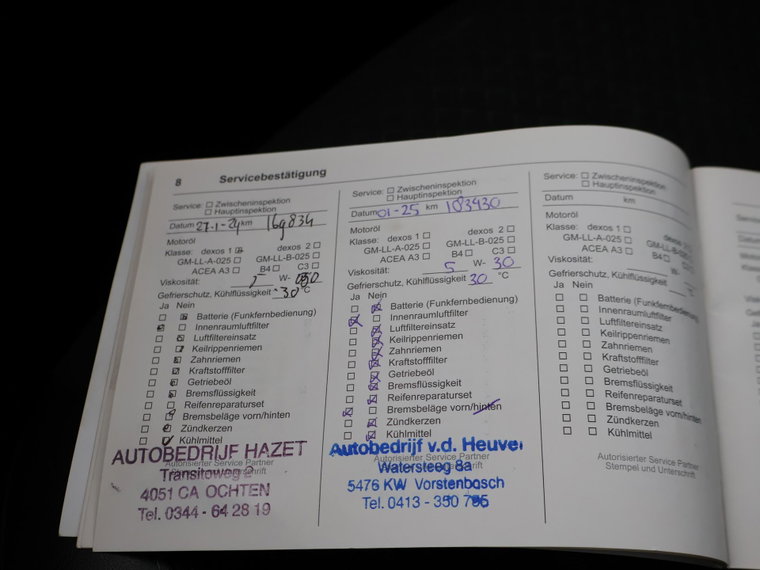 8 Servicebestätigung
Service: Zwischeninspektion
Hauptinspektion
Datum 27-1-24 km 169834
Motoröl
Klasse: dexos 1 dexos 2
GM-LL-A-025 GM-LL-B-025
ACEA A3 B4 C3
Viskosität: W-
Gefrierschutz, Kühlflüssigkeit -30 °C
Ja Nein
Batterie (Funkfernbedienung)
Innenraumluftfilter
Luftfiltereinsatz
Keilrippenriemen
Zahnriemen
Kraftstofffilter
Getriebeöl
Bremsflüssigkeit
Reifenreparaturset
Bremsbeläge vorn/hinten
Zündkerzen
Kühlmittel
Autorisierter Service Partner
AUTOBEDRIJF HAZET
Transitoweg
4051 CA OCHTEN
Tel. 0344 - 64 28 19
Service: Zwischeninspektion
Hauptinspektion
Datum 01-25 km 183430
Motoröl
Klasse: dexos 1 dexos 2
GM-LL-A-025 GM-LL-B-025
ACEA A3 B4 C3
Viskosität: 5 W- 30
Gefrierschutz, Kühlflüssigkeit 30 °C
Ja Nein
Batterie (Funkfernbedienung)
Innenraumluftfilter
Luftfiltereinsatz
Keilrippenriemen
Zahnriemen
Kraftstofffilter
Getriebeöl
Bremsflüssigkeit
Reifenreparaturset
Bremsbeläge vorn/hinten
Zündkerzen
Kühlmittel
Autorisierter Service Partner
Autobedrijf v.d. Heuvel
Watersteeg 8a
5476 KW Vorstenbosch
Tel. 0413 - 350 795
Service: Zwischeninspektion
Hauptinspektion
Datum km
Motoröl
Klasse: dexos 1 dexos 2
GM-LL-A-025 GM-LL-B-025
ACEA A3 B4
Viskosität: W-
Gefrierschutz, Kühlflüssigkeit
Ja Nein
Batterie (Funkfernbedienung)
Innenraumluftfilter
Luftfiltereinsatz
Keilrippenriemen
Zahnriemen
Kraftstofffilter
Getriebeöl
Bremsflüssigkeit
Reifenreparaturset
Bremsbeläge vorn/hinten
Zündkerzen
Kühlmittel
Autorisierter Service Partner
Stempel und Unterschrift